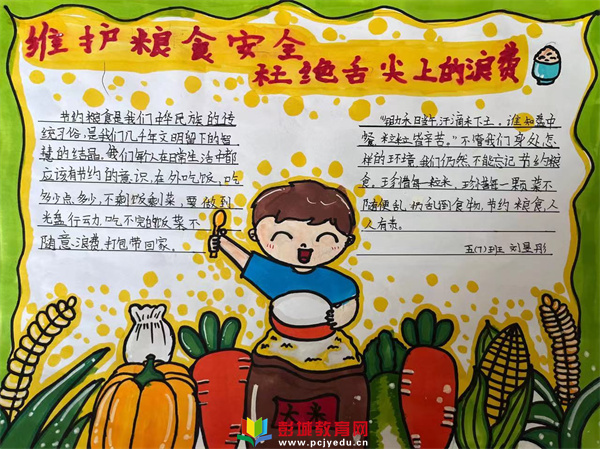 维护粮食安全
杜绝舌尖上的浪费
节约粮食是我们中华民族的传
统习俗,是我们几千年文明留下的智
慧的结晶。我们每个人在日常生活中都
应该有节约的意识,在外吃饭,吃
多少点多少,不剩饭剩菜,要做到
光盘行动,吃不完的饭菜不
随意浪费打包带回家。
"锄禾日当午,汗滴禾下土,谁知盘中
餐,粒粒皆辛苦。"不管我们身处怎
样的环境,我们仍然不能忘记节约粮
食,珍惜每一粒米,珍惜每一颗菜不
随便乱扔乱倒食物。节约粮食,人
人有责。
五(7)班 刘昱彤
大米
彭城教育网
www.pcjyedu.cn